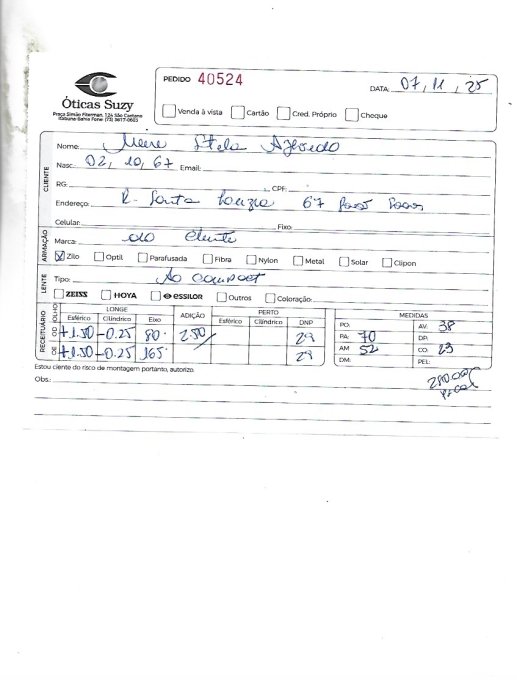 PEDIDO 40524
DATA: 07, 11, 25
Óticas Suzy
Praça Simão Fiterman, 124 São Caetano
Itabuna-Bahia Fone: (73) 3617-0603
Venda à vista Cartão Créd. Próprio Cheque
CLIENTE
Nome: Meire Stela Azevedo
Nasc.: 02, 10, 67 Email:
RG: CPF:
Endereço: R. Santa Luzia 67
Celular: Fixo:
ARMAÇÃO
Marca: do cliente
X Zilo Optil Parafusada Fibra Nylon Metal Solar Clipon
LENTE
Tipo: Ao compact
ZEISS HOYA essilor Outros Coloração:
RECEITUÁRIO
OLHO LONGE ADIÇÃO PERTO MEDIDAS
Esférico Cilíndrico Eixo Esférico Cilíndrico DNP
OD +1.50 -0.25 80. 2.50 29
OE +1.50 -0.25 165 29
PO: AV: 38
PA: 70 DP:
AM: 52 CO: 23
DM: PEL:
Estou ciente do risco de montagem portanto, autorizo.
Obs.: